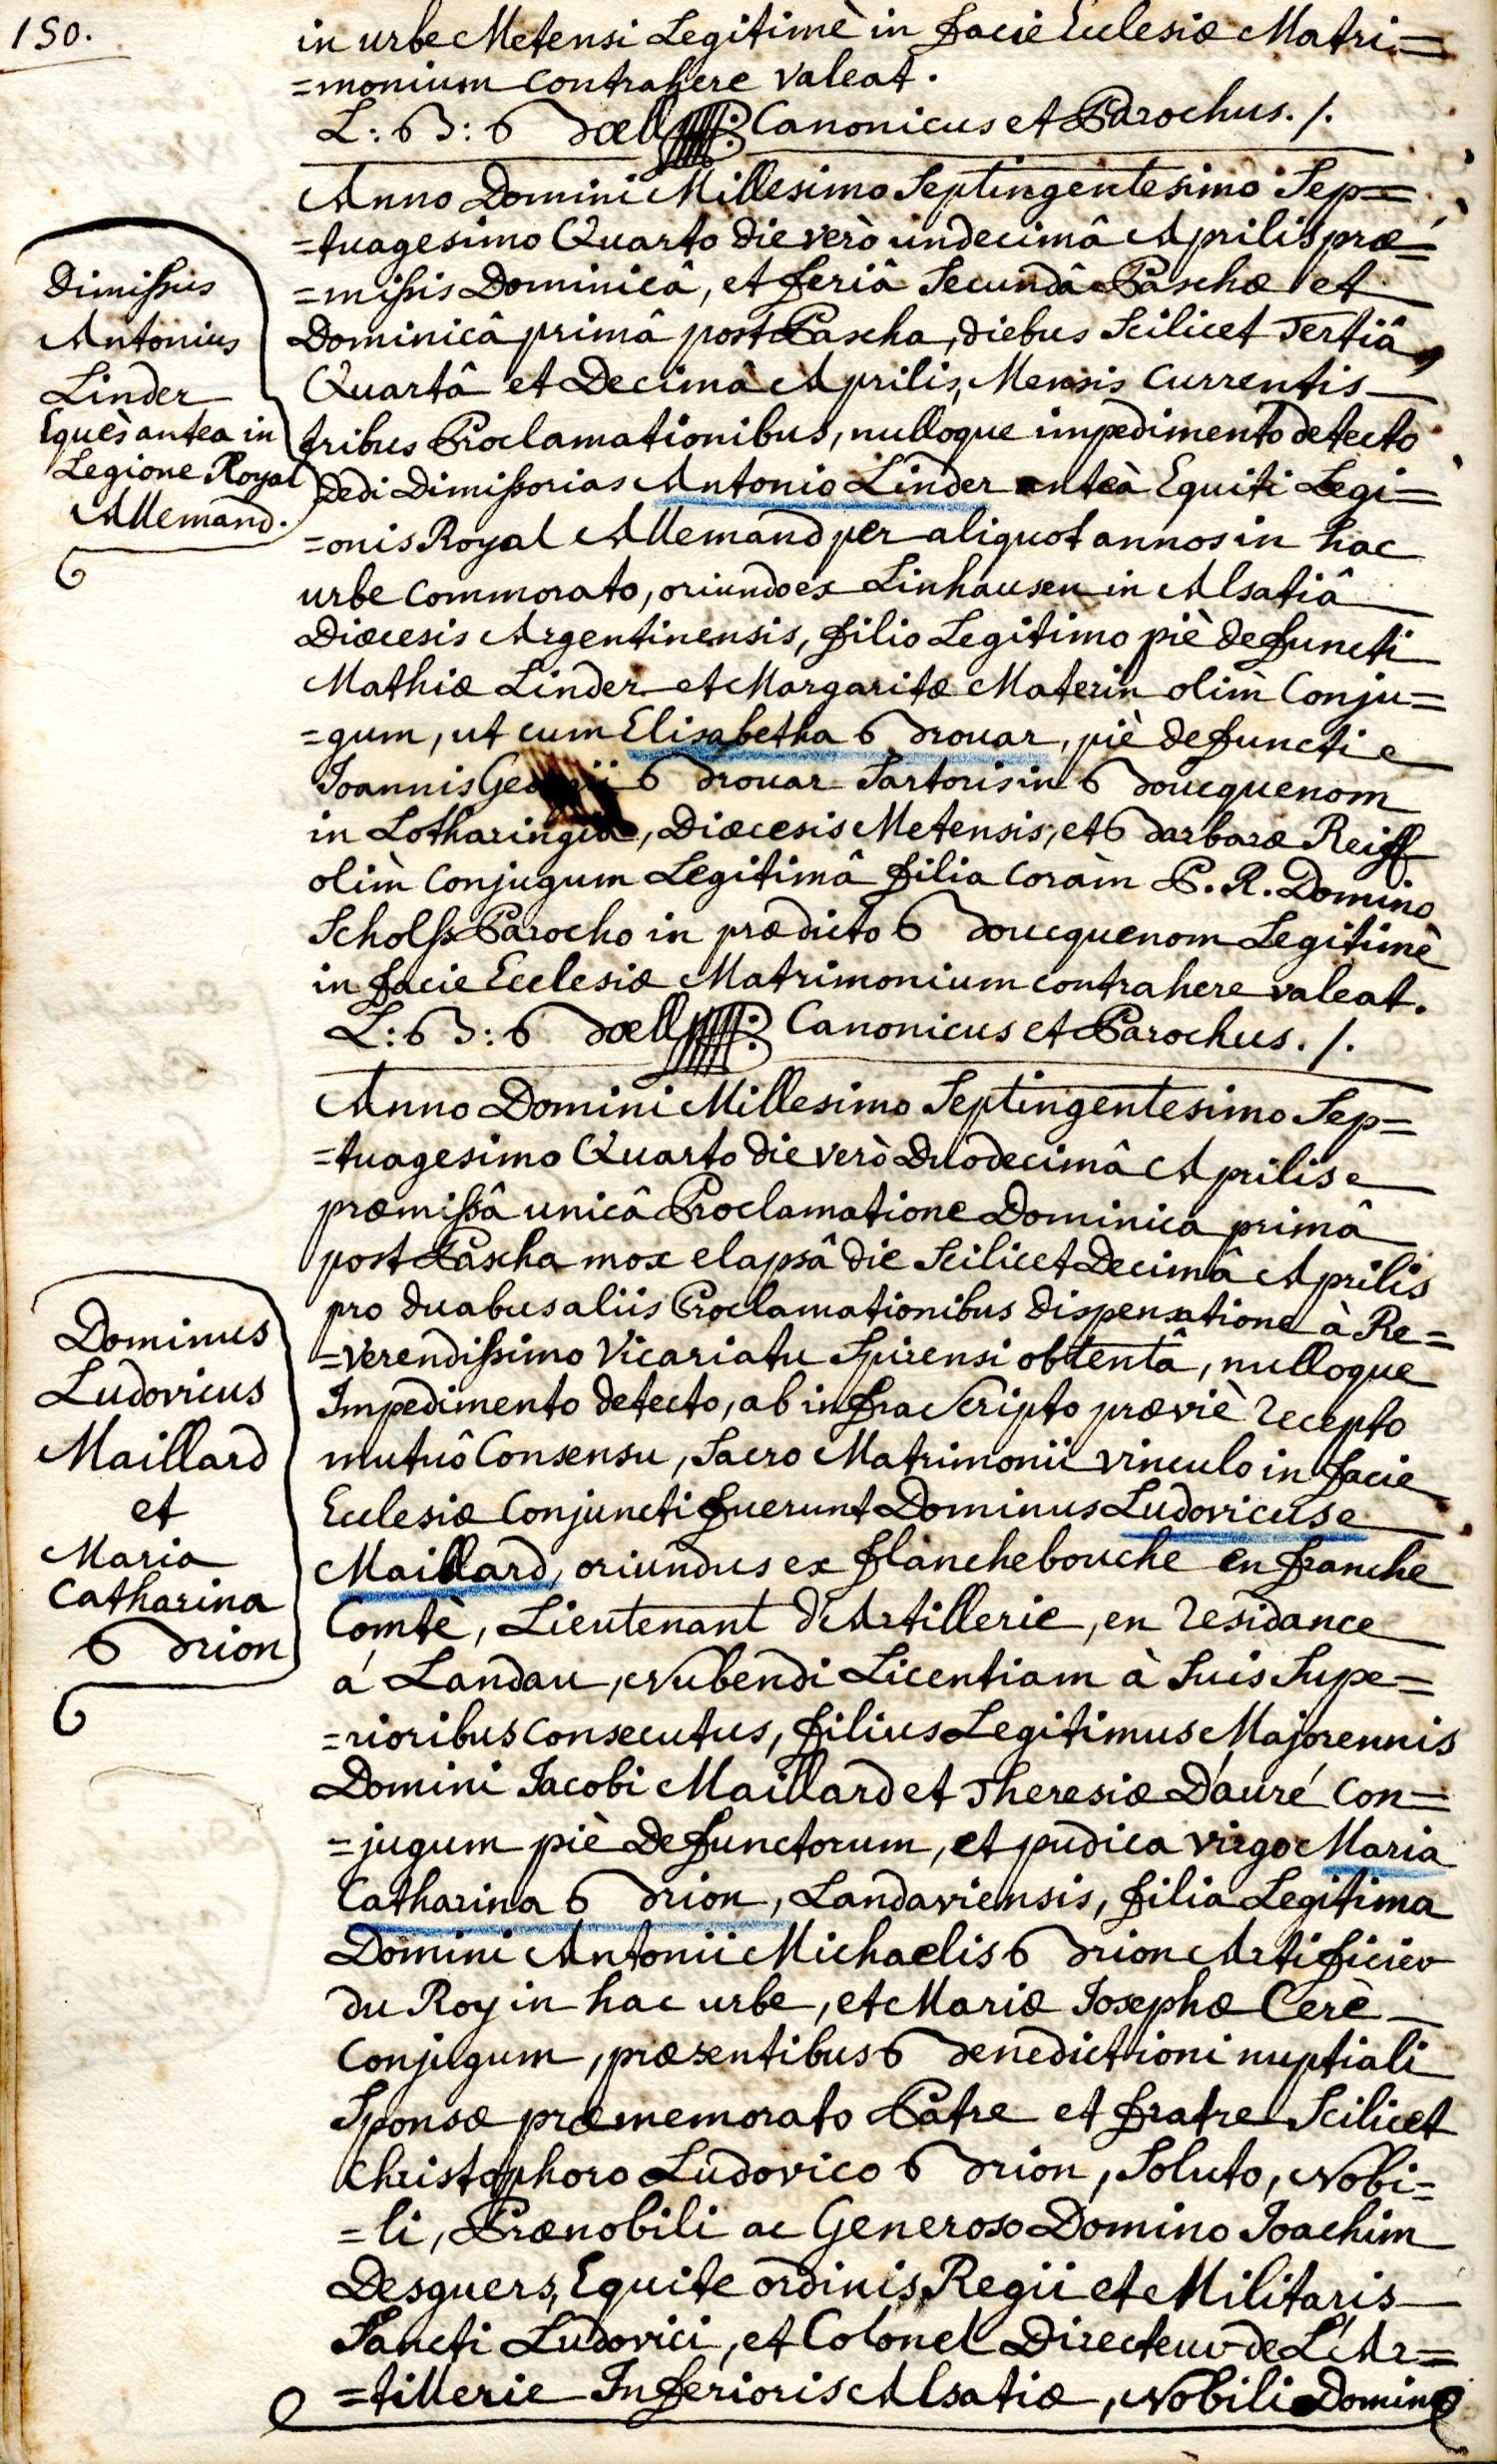 150.
in urbe Metensi Legitimè in facie Ecclesiæ Matri=
=monium Contrahere Valeat.
L: B: Böell Canonicus et Parochus. /.
Anno Domini Millesimo Septingentesimo Sep=
=tuagesimo Quarto die verò undecimâ Aprilis præ=
=missis Dominicâ, et feriâ Secundâ Paschæ et
Dominicâ primâ post Pascha, diebus Scilicet Tertiâ,
Quartâ et Decimâ Aprilis, Mensis Currentis
tribus Proclamationibus, nulloque impedimento detecto
Dedi Dimissorias Antonio Linder anteà Equiti Legi=
=onis Royal Allemand per aliquot annos in hac
urbe Commorato, oriundo ex Linhausen in Alsatiâ
Diœcesis Argentinensis, filio Legitimo piè defuncti
Mathiæ Linder et Margaritæ Materin olim Conju=
=gum, ut cum Elisabetha Brouar, piè defuncti
Joannis Georgii Brouar Sartoris in Boucquenom
in Lotharingia, Diœcesis Metensis, et Barbaræ Reiff
olim Conjugum Legitimâ filia Coràm P. R. Domino
Scholss Parocho in prædicto Boucquenom Legitimè
in facie Ecclesiæ Matrimonium contrahere valeat.
L: B: Böell Canonicus et Parochus. /.
Anno Domini Millesimo Septingentesimo Sep=
=tuagesimo Quarto die verò Duodecimâ Aprilis
præmissâ unicâ Proclamatione Dominica primâ
post Pascha mox elapsâ die Scilicet Decimâ Aprilis
pro duabus aliis Proclamationibus dispensatione à Re=
=verendissimo Vicariatu Spirensi obtentâ, nulloque
Impedimento detecto, ab infra Scripto præviè recepto
mutuô Consensu, Sacro Matrimonii vinculo in facie
Ecclesiæ Conjuncti fuerunt Dominus Ludovicus
Maillard, oriundus ex flanchebouche en franche
Comtè, Lieutenant d'Artillerie, en residance
á Landau, Nubendi Licentiam à Suis Supe=
=rioribus consecutus, filius Legitimus Majorennis
Domini Jacobi Maillard et Theresiæ D'auré Con=
=jugum piè Defunctorum, et pudica virgo Maria
Catharina Brion, Landaviensis, filia Legitima
Domini Antonii Michaelis Brion Artificier
du Roy in hac urbe, et Mariæ Josephæ Cerè
Conjugum, præsentibus Benedictioni nuptiali
Sponsæ præmemorato Patre et fratre Scilicet
Christophoro Ludovico Brion, Soluto, Nobi=
=li, Prænobili ac Generoso Domino Joachim
Desguers, Equite ordinis Regii et Militaris
Sancti Ludovici, et Colonel Directeur de L'Ar=
=tillerie Inferioris Alsatiæ, Nobili Domino
Dimissus
Antonius
Linder
Equès antea in
Legione Royal
Allemand.
Dominus
Ludovicus
Maillard
et
Maria
Catharina
Brion